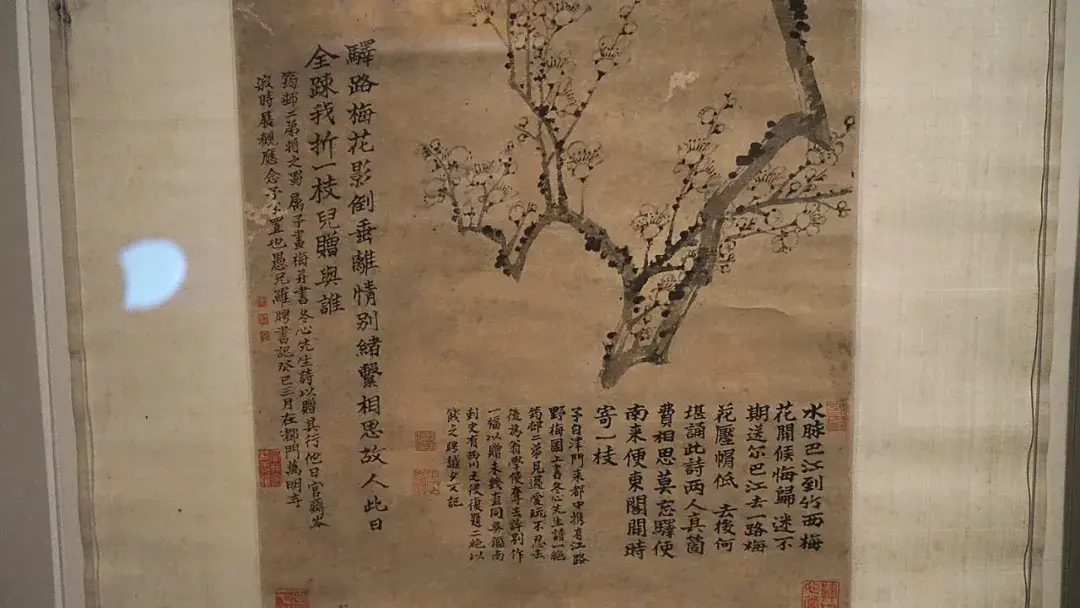 驛路梅花影倒垂離情別緒繫相思故人此日
全踈我折一枝兒贈與誰
筠邨二弟将之蜀屬予畫梅并書冬心先生詩以贈其行他日官齋岑
寂時展觀應念予不置也愚兄羅聘書記癸巳三月在都門萬明寺
水脉巴江到竹西梅
花開候悔歸迷不
期送尔巴江去一路梅
花壓帽低 去後何
堪誦此詩兩人真箇
費相思莫忘驛使
南来便東閣開時
寄一枝
予自津門来都中携有江路
野梅圖上書冬心先生詩一絶
筠邨二弟見過愛玩不忍去
後為翁學使奪去許别作
一幅以贈未幾直同吳鑑南
刺史有西川之役復題二絶以
餞之聘越夕又記